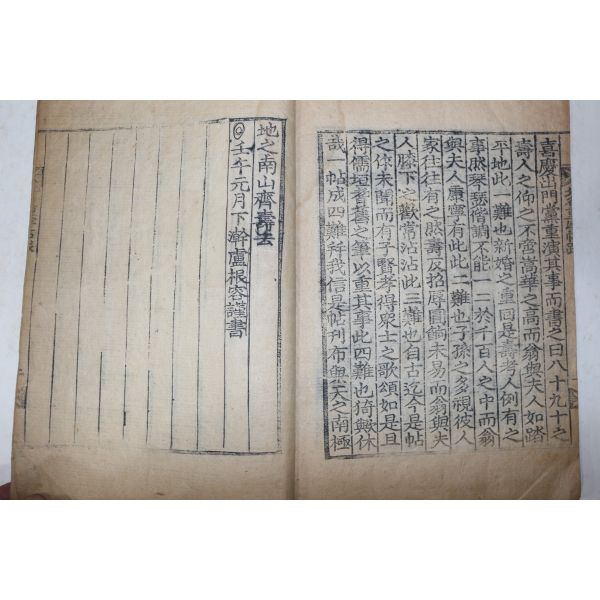 喜慶出門黨重演其事而書之曰八十九十之
壽人之仰之不啻嵩華之高而翁與夫人如踏
平地此一難也新婚之重回是壽考人例有之
事然琴瑟偕調不能一二於千百人之中而翁
與夫人康寧有此此二難也子孫之多視彼人
家往往有之然壽及招辱圓餉未易而翁與夫
人膝下之歡常沾沾此三難也自古迄今是帖
之作未聞而有子賢孝得衆士之歌頌如是且
得儒垣耆舊之筆以重其事此四難也猗歟休
哉一帖成四難幷我信是帖刊布與天之南極
地之南山齊壽云
壬午元月下澣盧根容謹書